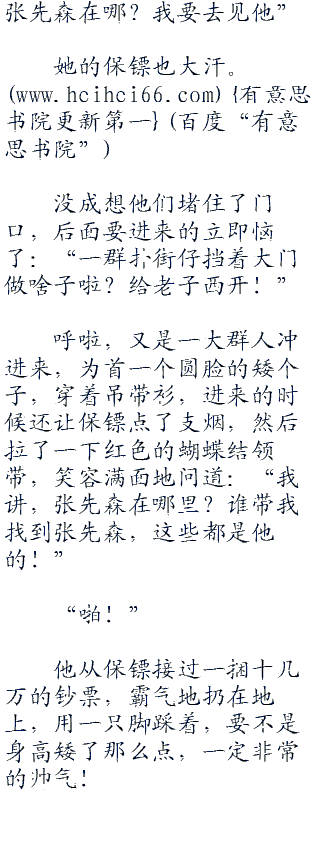 张先森在哪？我要去见他”
她的保镖也大汗。
(www.hcihci66.com) {有意思
书院更新第一} (百度“有意
思书院”)
没成想他们堵住了门
口，后面要进来的立即恼
了：“一群扑街仔挡着大门
做啥子啦？给老子西开！”
呼啦，又是一大群人冲
进来，为首一个圆脸的矮个
子，穿着吊带衫，进来的时
候还让保镖点了支烟，然后
拉了一下红色的蝴蝶结领
带，笑容满面地问道：“我
讲，张先森在哪里？谁带我
找到张先森，这些都是他
的！”
“啪！”
他从保镖接过一捆十几
万的钞票，霸气地扔在地
上，用一只脚踩着，要不是
身高矮了那么点，一定非常
的帅气！